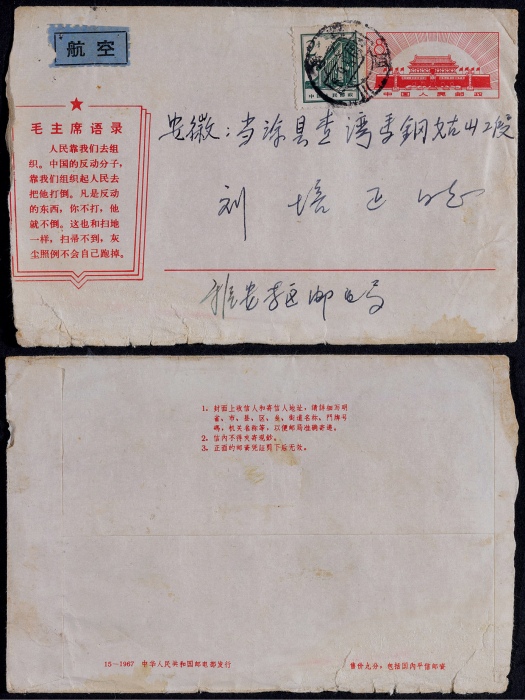 航空
8
中国人民邮政
毛主席语录
人民靠我们去组
织。中国的反动分子，
靠我们组织起人民去
把他打倒。凡是反动
的东西，你不打，他
就不倒。这也和扫地
一样，扫帚不到，灰
尘照例不会自己跑掉。
安徽：当涂县查湾
刘培正同志
邮电局
1. 封面上收信人和寄信人地址，请详细写明
省、市、县、区、乡、街道名称、门牌号
码，机关名称等，以便邮局准确寄递。
2. 信内不得夹寄现钞。
3. 正面的邮资凭证剪下后无效。
15－1967 中华人民共和国邮电部发行
售价九分，包括国内平信邮资